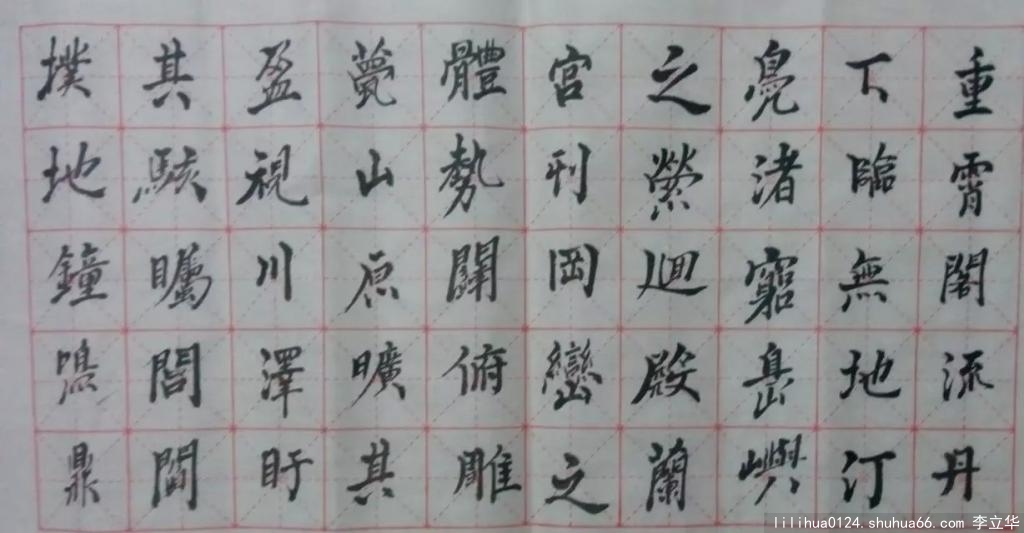 重霄閣流丹
下臨無地汀
鳧渚窮島嶼
之縈迴殿蘭
宮刊岡巒之
體勢闥俯雕
甍山原曠其
盈視川澤盱
其駭矚閭閻
撲地鐘鳴鼎
lilihua0124.shuhua66.com 李立华